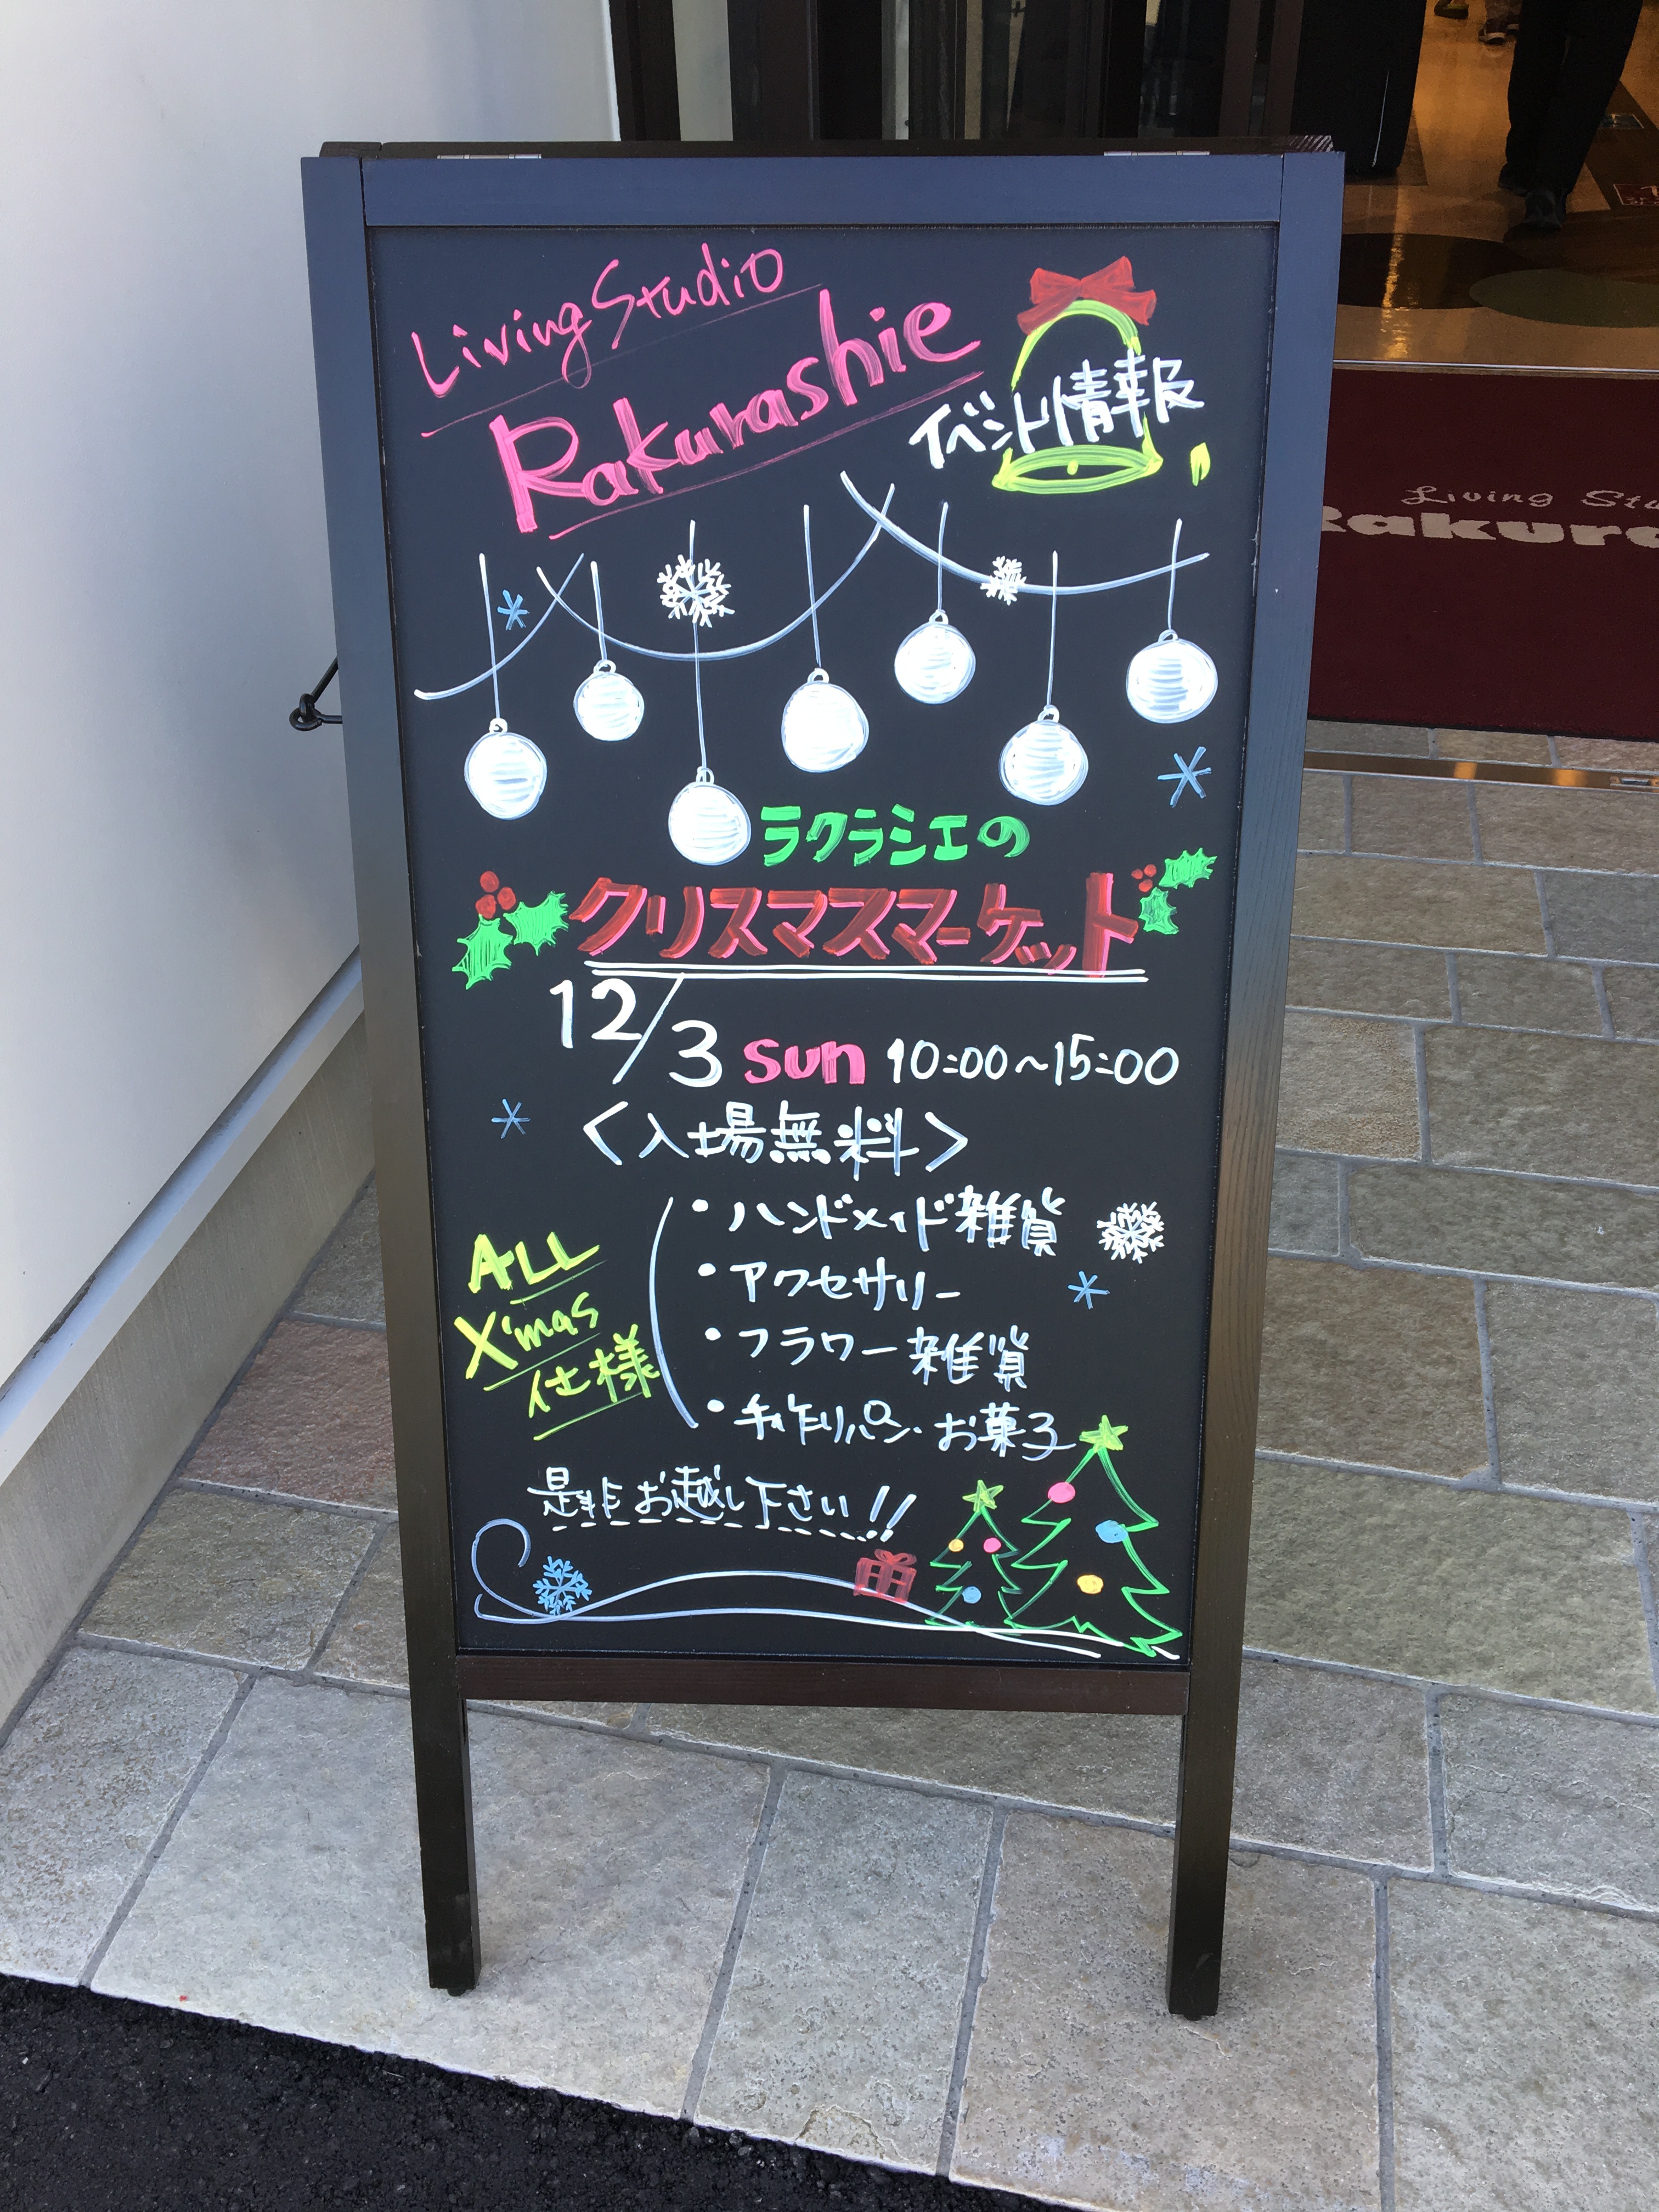 Living Studio
Rakurashie
イベント情報
ラクラシエの
クリスマスマーケット
12/3 sun 10:00～15:00
<入場無料>
ALL
X'mas
仕様
・ハンドメイド雑貨
・アクセサリー
・フラワー雑貨
・手作りパン・お菓子
是非お越し下さい!!
Living Stu
Rakura